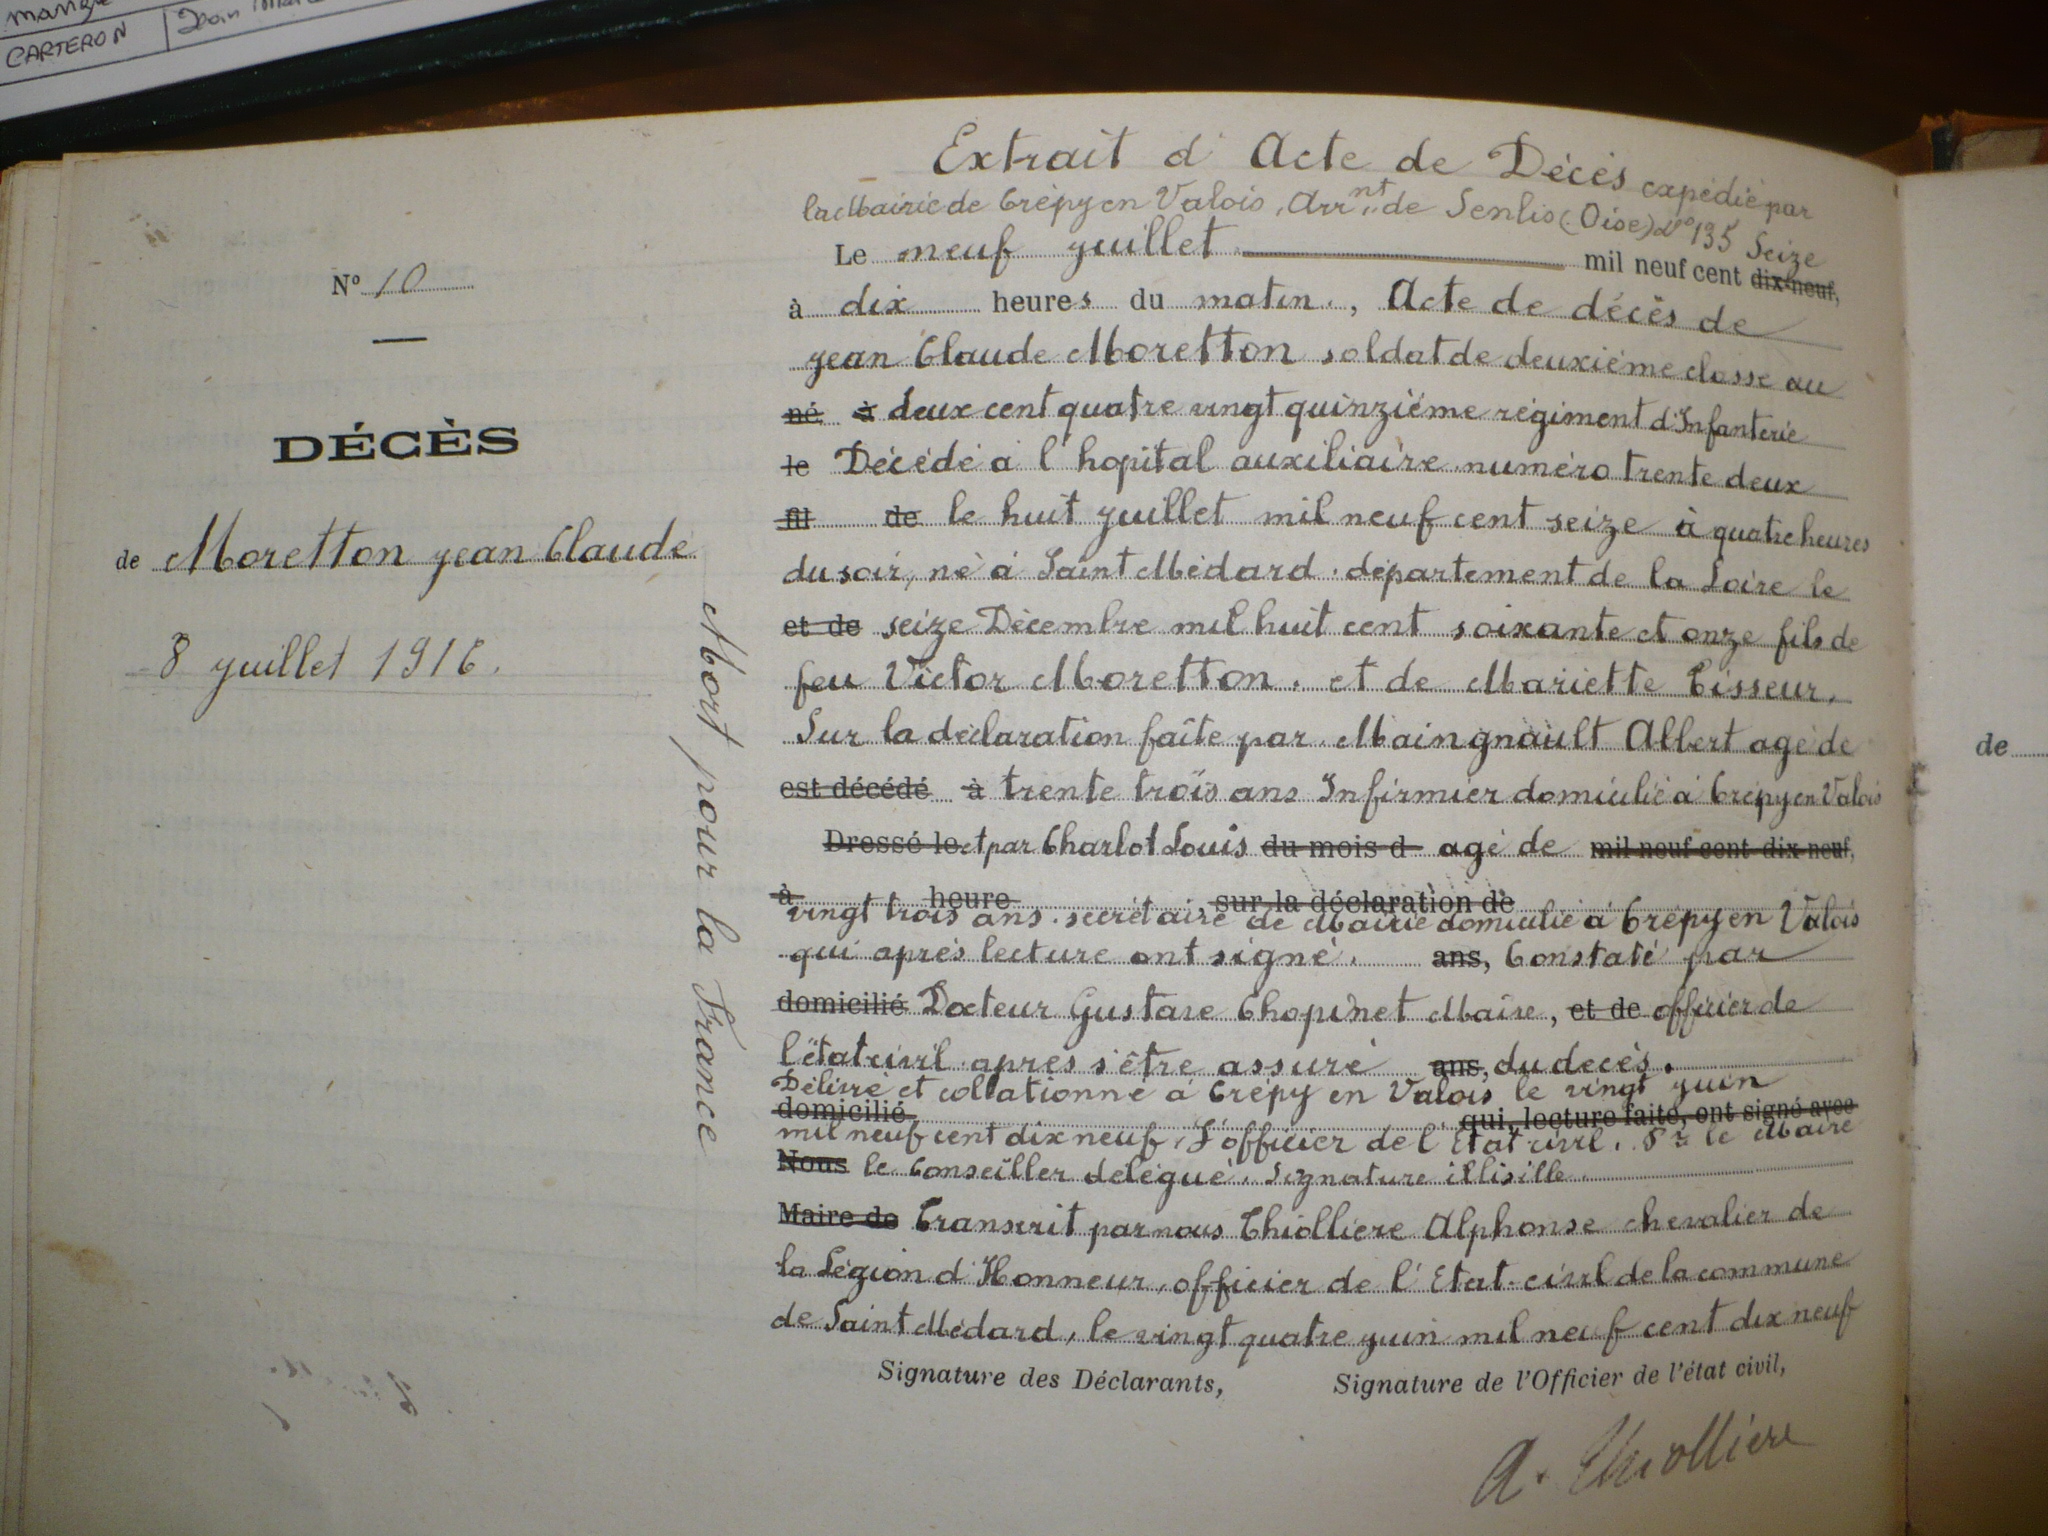 CARTERON
N° 10
DÉCÈS
de Moretton Jean Claude
8 juillet 1916.
Mort pour la France
Extrait d'Acte de Décès expédié par
la Mairie de Crépy en Valois, Arr.nt de Senlis (Oise) N° 135 Seize
Le neuf juillet mil neuf cent dix-neuf,
à dix heures du matin, Acte de décès de
Jean Claude Moretton soldat de deuxième classe au
né à deux cent quatre vingt quinzième régiment d'Infanterie
le Décédé a l'hopital auxiliaire numéro trente deux
fil de le huit juillet mil neuf cent seize à quatre heures
du soir, né à Saint Médard département de la Loire le
et de seize Décembre mil huit cent soixante et onze fils de
feu Victor Moretton. et de Mariette Tisseur,
Sur la déclaration faîte par Maingnault Albert agé de
est décédé à trente trois ans Infirmier domicilié à Crépy en Valois
Dressé le et par Charlot Louis du mois d agé de mil neuf cent dix-neuf,
à heure sur la déclaration de
vingt trois ans. secrétaire de Mairie domicilié à Crépy en Valois
qui après lecture ont signé. ans, Constaté par
domicilié Docteur Gustave Chopinet Maire, et de officier de
l'état civil après s'être assuré ans, du decès.
Délivré et collationné à Crépy en Valois le vingt juin
domicilié qui, lecture faite, ont signé avec
mil neuf cent dix neuf, L'officier de l'Etat civil. Pr le Maire
Nous le Conseiller délégué. Signature illisille.
Maire de Transcrit par nous Thiolliere Alphonse chevalier de
la Légion d'Honneur, officier de l'Etat-civil de la commune
de Saint Médard, le vingt quatre juin mil neuf cent dix neuf
Signature des Déclarants, Signature de l'Officier de l'état civil,
A. Thiolliere
de